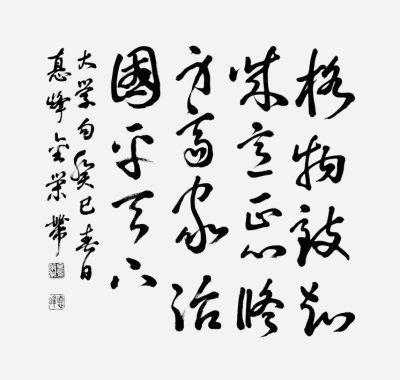 格物致知
誠意正心修
身齊家治
國平天下
大学句癸巳春日
峰金榮